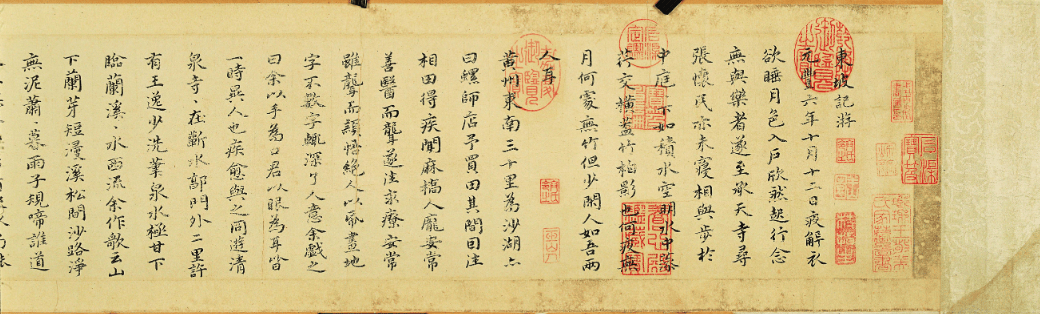 東坡記游
元豐六年十月十二日夜解衣
欲睡月色入戶欣然起行念
無與樂者遂至承天寺尋
張懷民亦未寢相與步於
中庭下如積水空明水中藻
荇交橫蓋竹栢影也何夜無
月何處無竹但少閒人如吾兩
人耳
黃州東南三十里為沙湖亦
曰螺師店予買田其間因往
相田得疾聞麻橋人龐安常
善醫而聾遂往求療安常
雖聾而穎悟絕人以帋畫地
字不數字輒深了人意余戲之
曰余以手為口君以眼為耳皆
一時異人也疾愈與之同遊清
泉寺、在蘄水郭門外二里許
有王逸少洗筆泉水極甘下
臨蘭溪、水西流余作歌云山
下蘭芽短浸溪松間沙路淨
無泥蕭、暮雨子規啼誰道